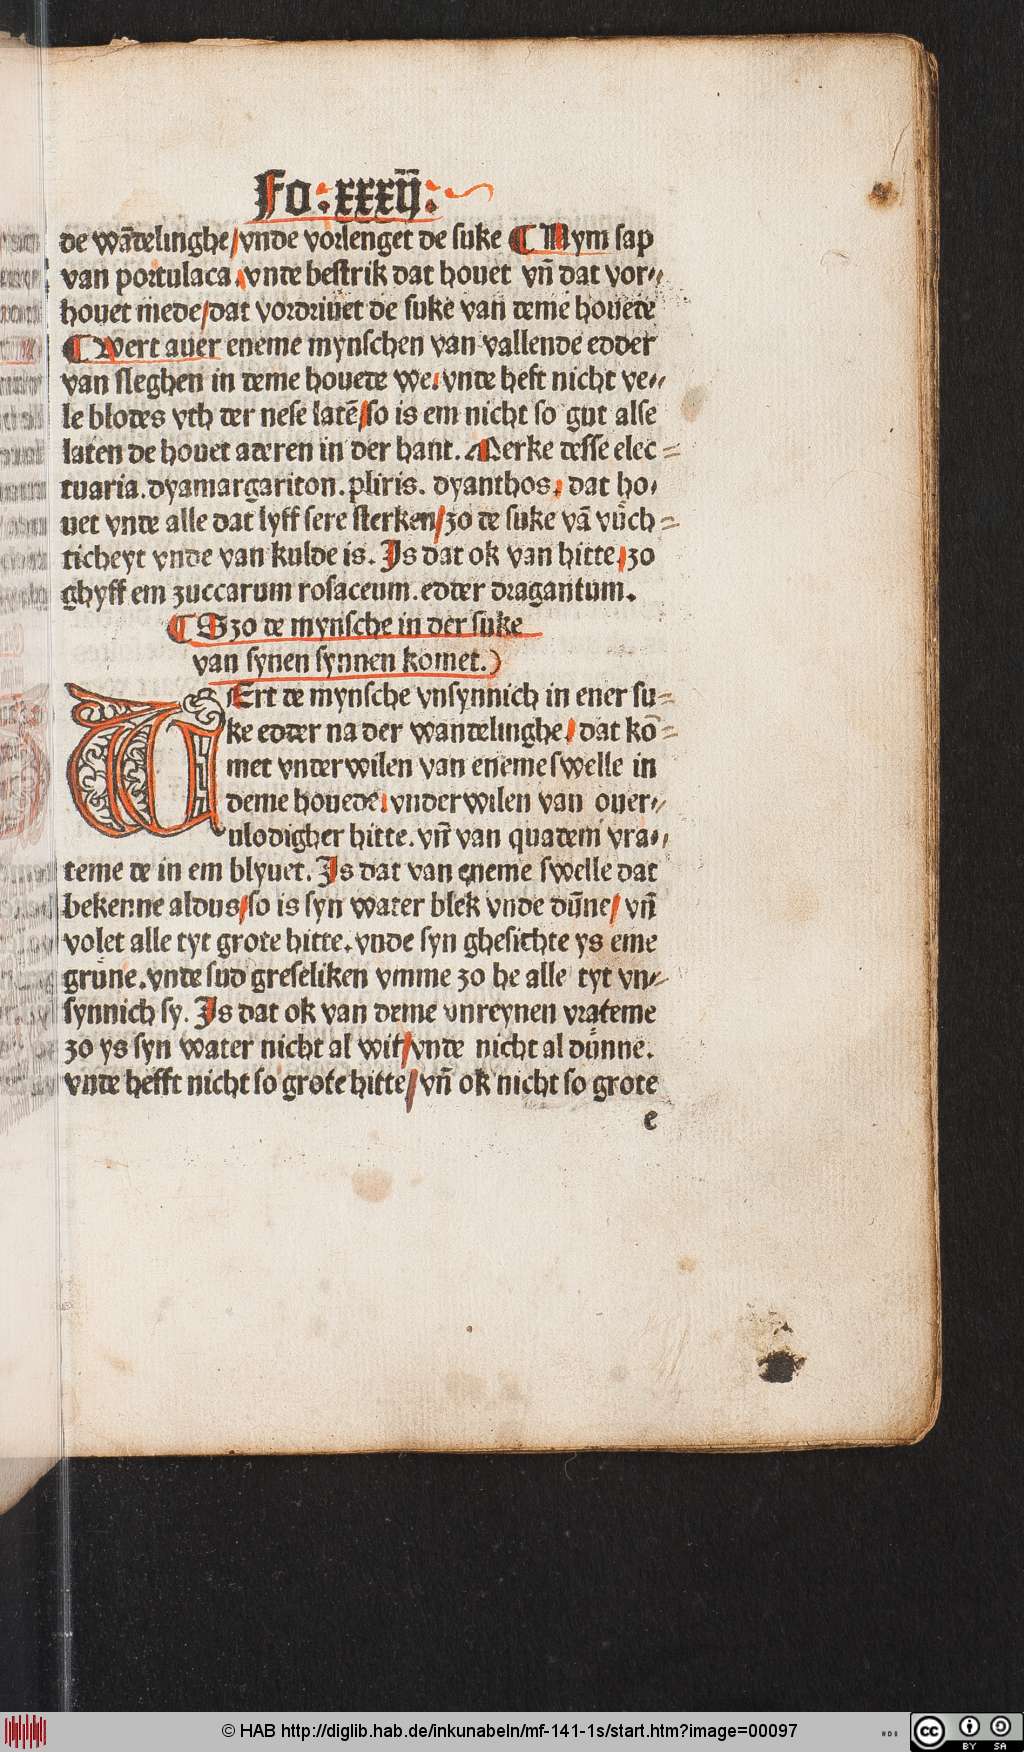 Fo. xxxij.
de wādelinghe/vnde vorlenget de suke ¶ Nym sap
van portulaca.vnde bestrik dat houet vn̄ dat vor⸗
houet mede/dat vordriuet de suke van deme houede
¶ Wert auer eneme mynschen van vallende edder
van sleghen in deme houede we.vnde heft nicht ve⸗
le blodes vth der nese latē/so is em nicht so gut alse
laten de houet aderen in der hant. Merke desse elec⸗
tuaria.dyamargariton.pliris. dyanthos. dat ho⸗
uet vnde alle dat lyff sere sterken/zo de suke vā vuͤch⸗
ticheyt vnde van kulde is. Is dat ok van hitte/zo
ghyff em zuccarum rosaceum.edder dragantum.
¶ Szo de mynsche in der suke
van synen synnen komet.)
WErt de mynsche vnsynnich in ener su⸗
ke edder na der wandelinghe/dat kō⸗
met vnderwilen van eneme swelle in
deme houede.vnderwilen van ouer⸗
vlodigher hitte.vn̄ van quadem vra⸗
teme de in em blyuet. Is dat van eneme swelle dat
bekenne aldus/so is syn water blek vnde duͤnne/vn̄
volet alle tyt grote hitte.vnde syn ghesichte ys eme
gruͤne.vnde sud greseliken vmme zo he alle tyt vn⸗
synnich sy. Is dat ok van deme vnreynen vrateme
zo ys syn water nicht al wit/vnde nicht al duͤnne.
vnde hefft nicht so grote hitte/vn̄ ok nicht so grote
e
© HAB http://diglib.hab.de/inkunabeln/mf-141-1s/start.htm?image=00097
cc BY SA